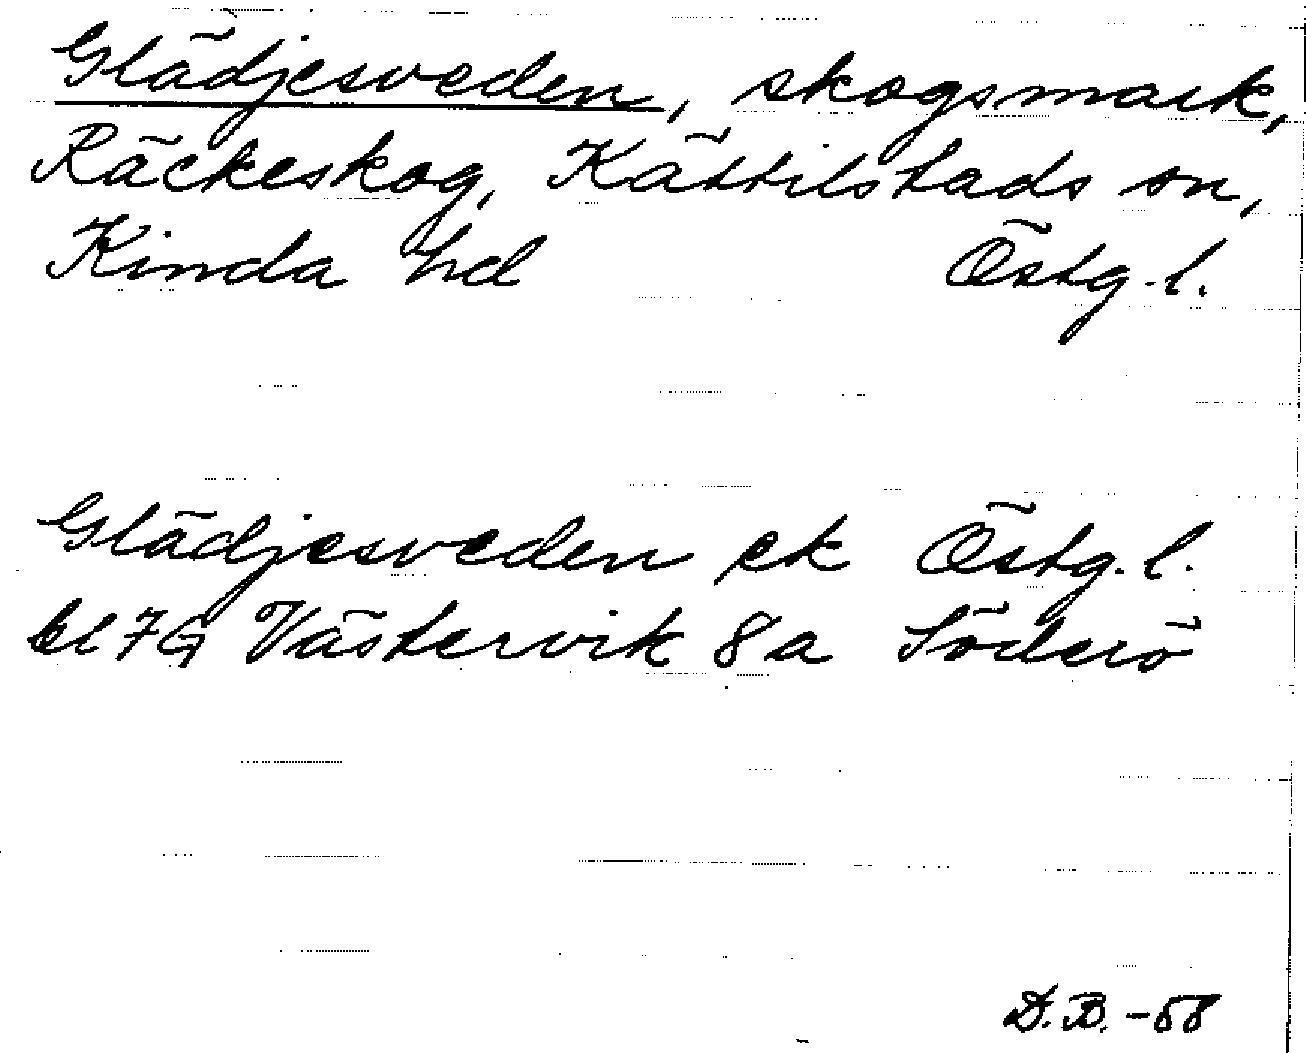 Glädjesveden, skogsmark,
Räckeskog, Kättilstads sn,
Kinda hd Östg.l.
Glädjesveden ek Östg.l.
bl 7G Västervik 8a Söderö
D.B. -58